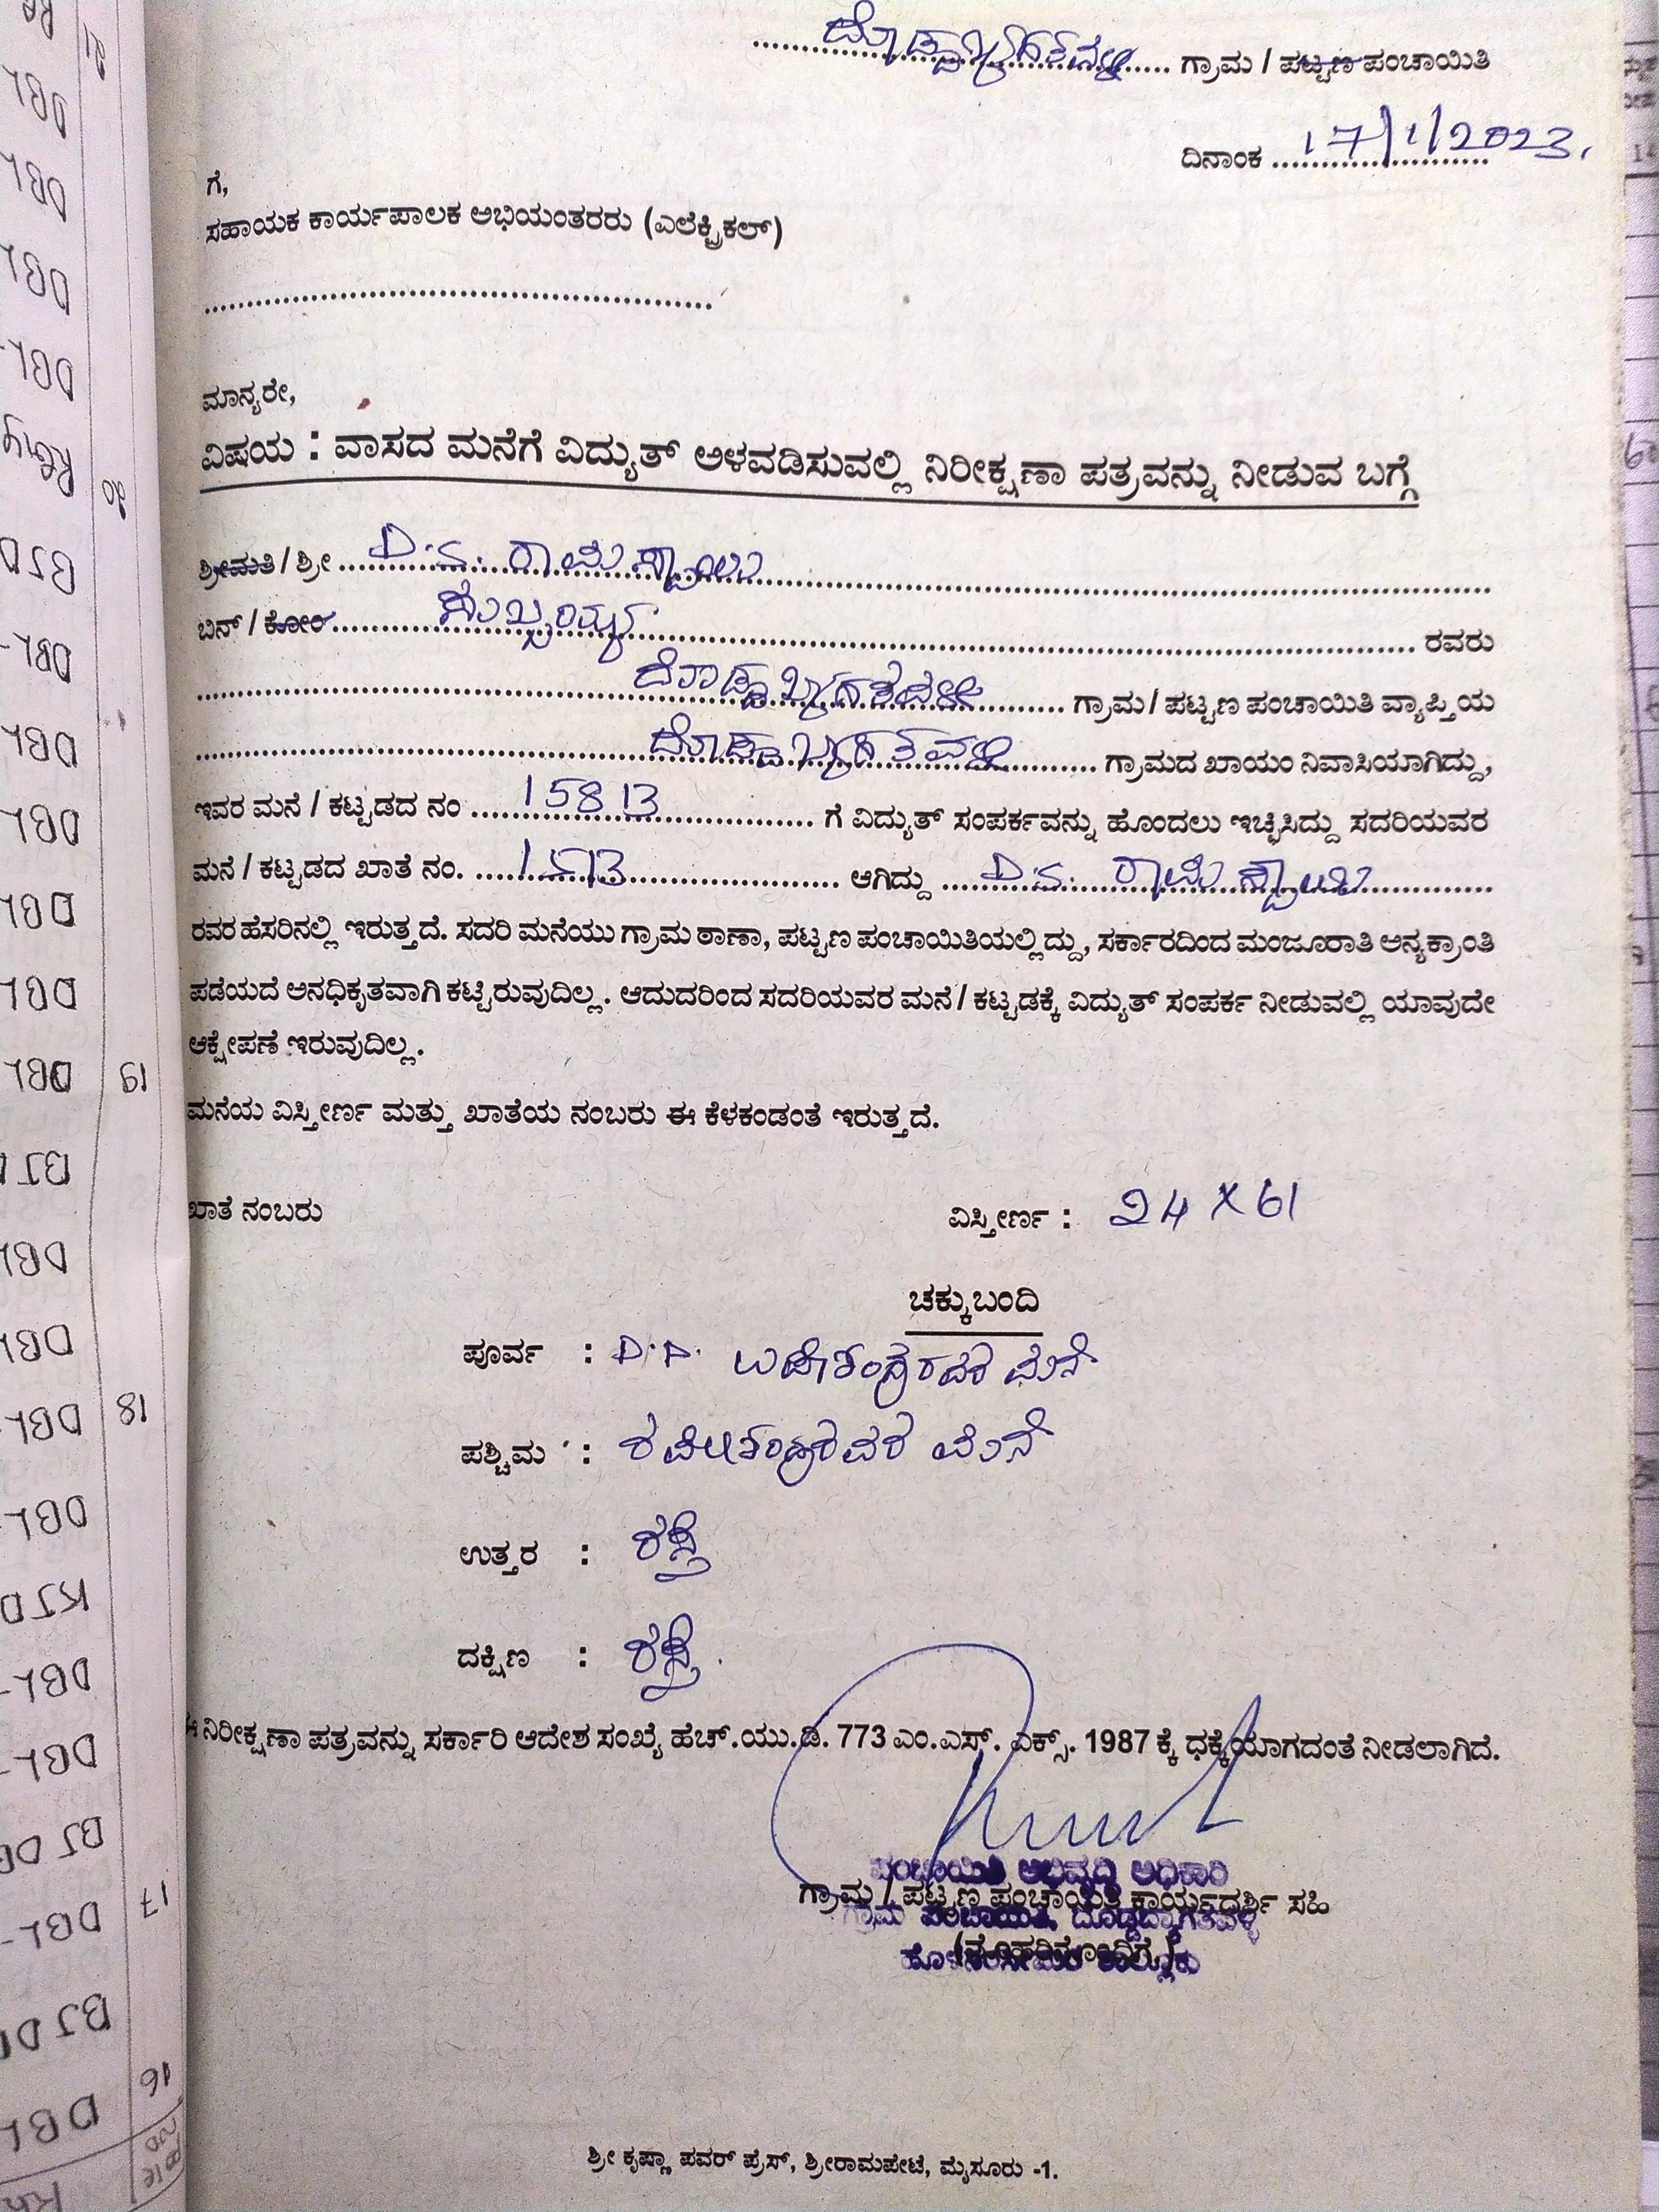 ದೊಡ್ಡಬ್ಯಾಗತವಳ್ಳಿ ಗ್ರಾಮ / ಪಟ್ಟಣ ಪಂಚಾಯಿತಿ
ದಿನಾಂಕ 17/1/2023.
ಗೆ,
ಸಹಾಯಕ ಕಾರ್ಯಪಾಲಕ ಅಭಿಯಂತರರು (ಎಲೆಕ್ಟ್ರಿಕಲ್)
ಮಾನ್ಯರೇ,
ವಿಷಯ : ವಾಸದ ಮನೆಗೆ ವಿದ್ಯುತ್ ಅಳವಡಿಸುವಲ್ಲಿ ನಿರೀಕ್ಷಣಾ ಪತ್ರವನ್ನು ನೀಡುವ ಬಗ್ಗೆ
ಶ್ರೀಮತಿ / ಶ್ರೀ D.S. ರಾಮಸ್ವಾಮಿ
ಬಿನ್ / ಕೋಂ ಸುಬ್ಬಯ್ಯ ರವರು
ದೊಡ್ಡಬ್ಯಾಗತವಳ್ಳಿ ಗ್ರಾಮ / ಪಟ್ಟಣ ಪಂಚಾಯಿತಿ ವ್ಯಾಪ್ತಿಯ
ದೊಡ್ಡಬ್ಯಾಗತವಳ್ಳಿ ಗ್ರಾಮದ ಖಾಯಂ ನಿವಾಸಿಯಾಗಿದ್ದು,
ಇವರ ಮನೆ / ಕಟ್ಟಡದ ನಂ ಗೆ ವಿದ್ಯುತ್ ಸಂಪರ್ಕವನ್ನು ಹೊಂದಲು ಇಚ್ಛಿಸಿದ್ದು ಸದರಿಯವರ
ಮನೆ / ಕಟ್ಟಡದ ಖಾತೆ ನಂ. ಆಗಿದ್ದು D.S. ರಾಮಸ್ವಾಮಿ
ರವರ ಹೆಸರಿನಲ್ಲಿ ಇರುತ್ತದೆ. ಸದರಿ ಮನೆಯು ಗ್ರಾಮ ಠಾಣಾ, ಪಟ್ಟಣ ಪಂಚಾಯಿತಿಯಲ್ಲಿದ್ದು, ಸರ್ಕಾರದಿಂದ ಮಂಜೂರಾತಿ ಅನ್ಯಕ್ರಾಂತಿ
ಪಡೆಯದೆ ಅನಧಿಕೃತವಾಗಿ ಕಟ್ಟಿರುವುದಿಲ್ಲ. ಆದುದರಿಂದ ಸದರಿಯವರ ಮನೆ / ಕಟ್ಟಡಕ್ಕೆ ವಿದ್ಯುತ್ ಸಂಪರ್ಕ ನೀಡುವಲ್ಲಿ ಯಾವುದೇ
ಆಕ್ಷೇಪಣೆ ಇರುವುದಿಲ್ಲ.
ಮನೆಯ ವಿಸ್ತೀರ್ಣ ಮತ್ತು ಖಾತೆಯ ನಂಬರು ಈ ಕೆಳಕಂಡಂತೆ ಇರುತ್ತದೆ.
ಖಾತೆ ನಂಬರು ವಿಸ್ತೀರ್ಣ : 24 X 61
ಚಕ್ಕುಬಂದಿ
ಪೂರ್ವ : D.D. ಮನೆ
ಪಶ್ಚಿಮ : ಮನೆ
ಉತ್ತರ : ರಸ್ತೆ
ದಕ್ಷಿಣ : ರಸ್ತೆ.
ಈ ನಿರೀಕ್ಷಣಾ ಪತ್ರವನ್ನು ಸರ್ಕಾರಿ ಆದೇಶ ಸಂಖ್ಯೆ ಹೆಚ್.ಯು.ಡಿ. 773 ಎಂ.ಎಸ್. ಎಕ್ಸ್. 1987 ಕ್ಕೆ ಧಕ್ಕೆಯಾಗದಂತೆ ನೀಡಲಾಗಿದೆ.
ಪಂಚಾಯಿತಿ ಅಭಿವೃದ್ಧಿ ಅಧಿಕಾರಿ
ಗ್ರಾಮ / ಪಟ್ಟಣ ಪಂಚಾಯಿತಿ ಕಾರ್ಯದರ್ಶಿ ಸಹಿ
ಗ್ರಾಮ ಪಂಚಾಯಿತಿ, ದೊಡ್ಡಬ್ಯಾಗತವಳ್ಳಿ
(ಮೊಹರಿನೊಂದಿಗೆ)
ಹೊಳೆನರಸೀಪುರ ತಾಲ್ಲೂಕು
ಶ್ರೀ ಕೃಷ್ಣಾ ಪವರ್ ಪ್ರೆಸ್, ಶ್ರೀರಾಮಪೇಟೆ, ಮೈಸೂರು -1.